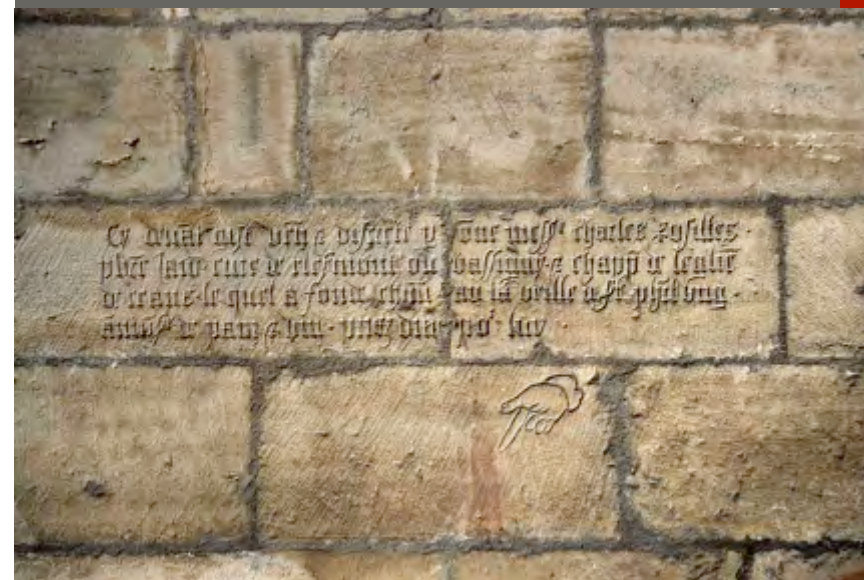 Cy devāt gist ven & discrete p sone mess charles
pbre iadis cure de clefmont ou bassigny & chapp de leglie
de ceans le quel a fonde chūn an la veille st phil ung
de pain & vin priez dieu po luy